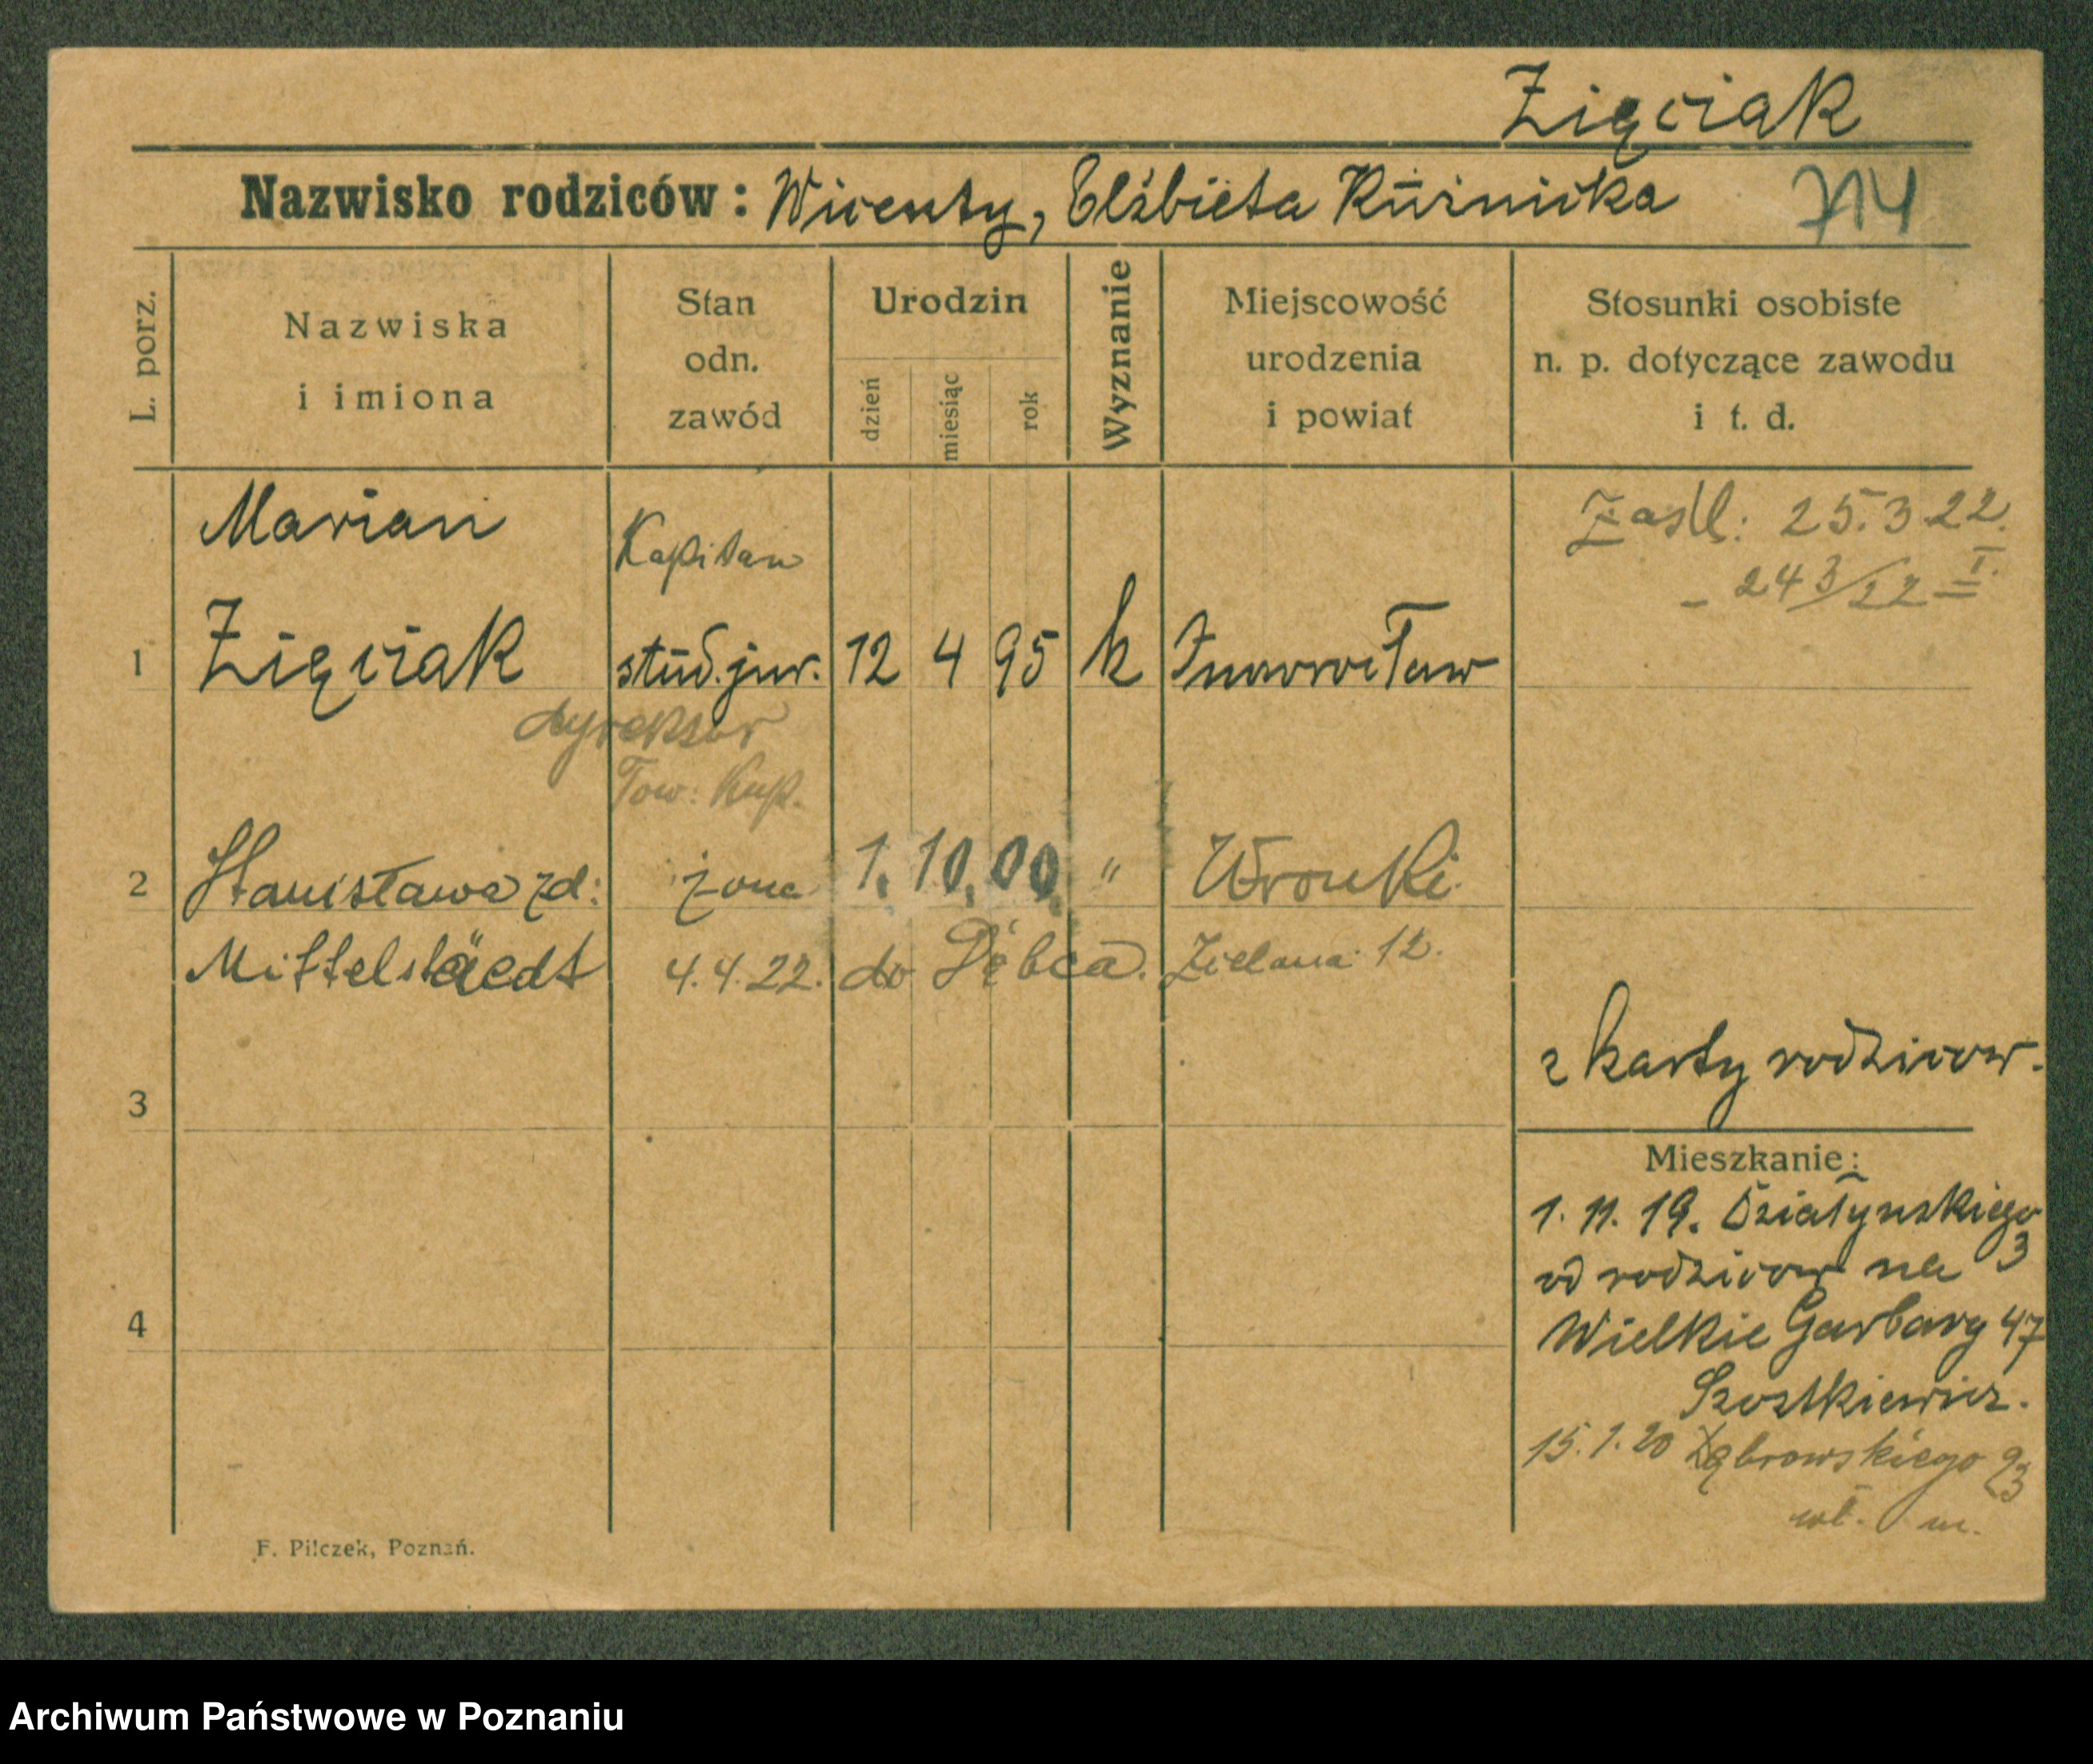 Zięciak
Nazwisko rodziców: Wicenty, Elżbieta Kuźnicka 714
L. porz.
Nazwiska
i imiona
Stan
odn.
zawód
Urodzin
dzień
miesiąc
rok
Wyznanie
Miejscowość
urodzenia
i powiat
Stosunki osobiste
n. p. dotyczące zawodu
i t. d.
Marian
Kapitan
1 Zięciak stud. jur. 12 4 95 k Inowrocław
dyrektor
Tow: Kup.
Zaśl: 25.3.22.
- 243/22 I.
2 Stanisława zd: żona 1. 10. 00 " Wronki
Mittelstäedt 4.4.22. do Dębca. Zielona 12.
3
z karty rodziców.
Mieszkanie:
1. 11. 19. Działyńskiego
3
od rodziców na
4
Wielkie Garbary 47
Szostkiewicz.
15.1.20 Dąbrowskiego 93
wł. m.
F. Pilczek, Poznań.
Archiwum Państwowe w Poznaniu